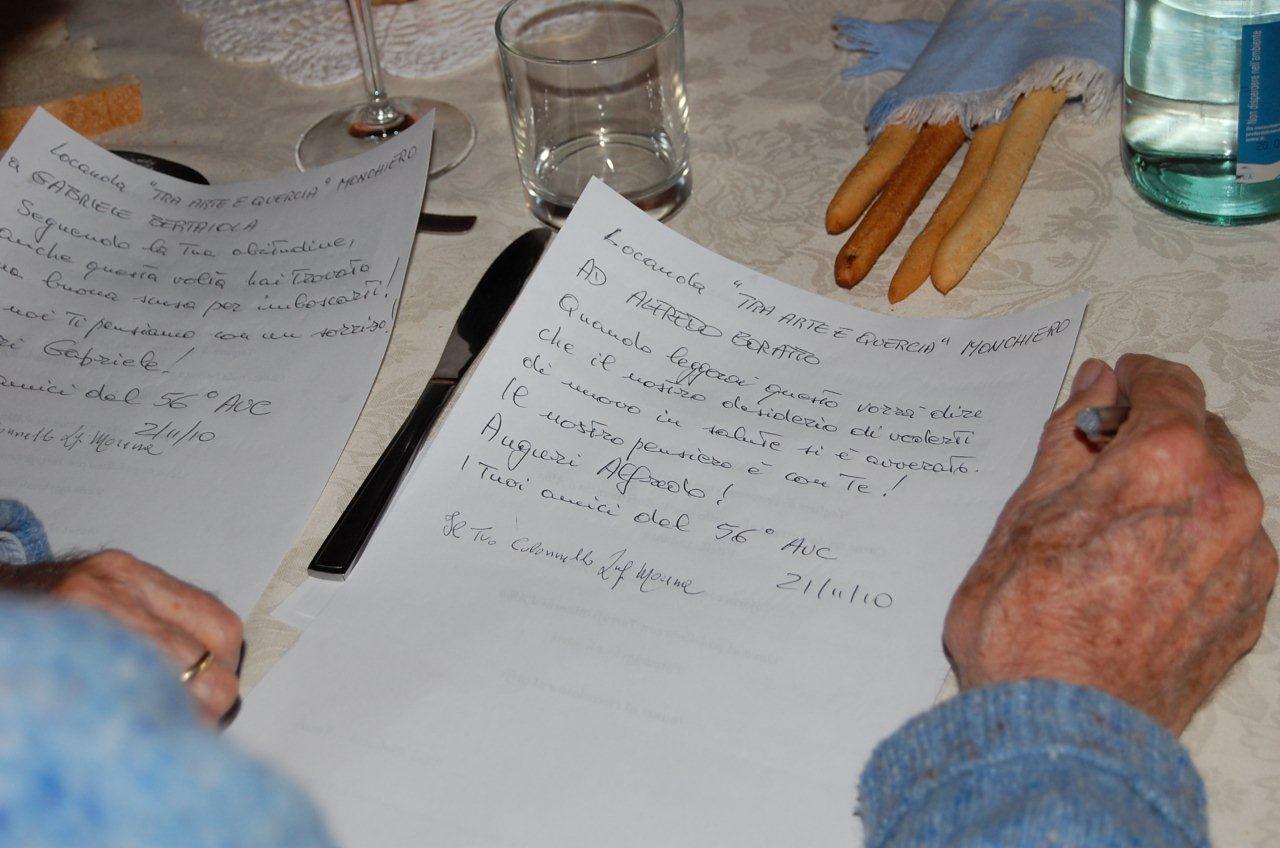 Locanda "TRA ARTE E QUERCIA" MONCHIERO
a GABRIELE BERTAIOLA
Seguendo la Tua abitudine,
anche questa volta hai trovato
na buona scusa per imboscarti!
noi Ti pensiamo con un sorriso!
ri Gabriele!
amici del 56° AUC
21/11/10
onnello
Locanda "TRA ARTE E QUERCIA" MONCHIERO
AD ALFREDO
Quando leggerai questo vorrà dire
che il nostro desiderio di vederti
di nuovo in salute si è avverato.
Il nostro pensiero è con Te!
Auguri Alfredo!
I Tuoi amici del 56° AUC
21/11/10
Il Tuo Colonnello
Non disperdere nell'ambiente